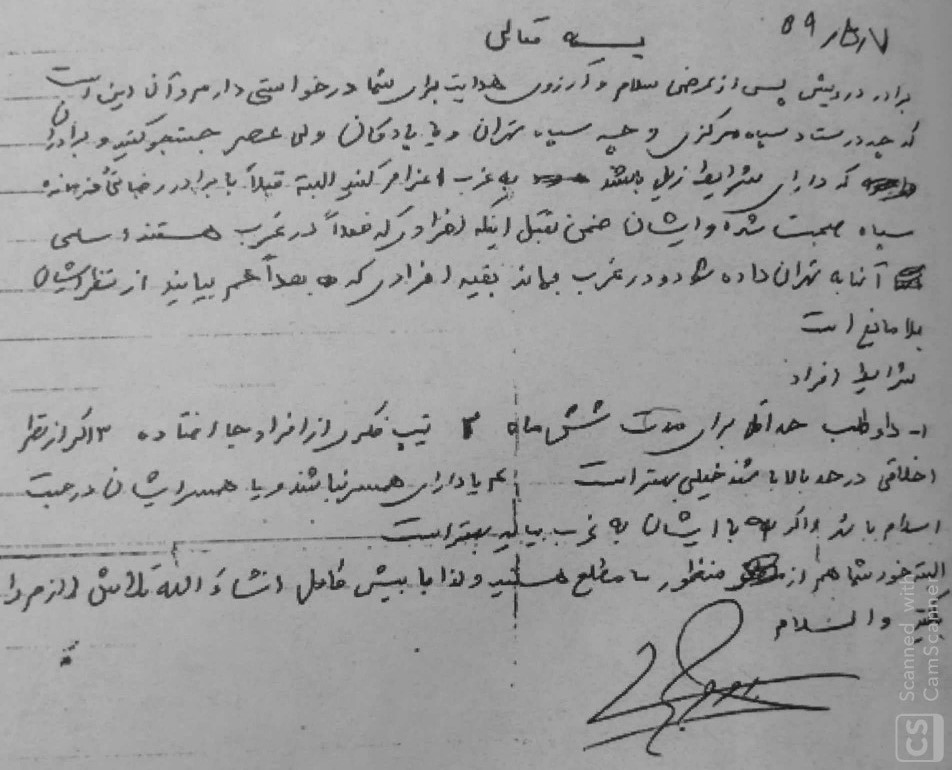 ۵۹/۵/۷
بسمه تعالی
برادر درویش پس از عرض سلام و آرزوی هدایت برای شما درخواستی دارم و آن این است
که چه در ستاد سپاه مرکزی و چه سپاه تهران و یا پادگان ولی عصر جستجو کنید و برادران
که دارای شرایط زیل باشند به غرب اعزام کنید البته قبلاً با برادر رضا
سپاه صحبت شده و ایشان ضمن تقبل اینکه افرادی که فعلاً در غرب هستند اسامی
آنها به تهران داده شود و در غرب بمانند بقیه افرادی که بعداً هم بیایند از نظر ایشان
بلامانع است
شرایط افراد
۱- داوطلب حداقل برای مدت شش ماه ۲ تیپ فکری از افراد جا افتاده ۳ اگر از نظر
اخلاقی در حد بالا باشند خیلی بهتر است ۴ یا دارای همسر نباشند و یا همسر ایشان در جهت
اسلام باشد و اگر با ایشان به غرب بیاید بهتر است
البته خود شما هم از منظور ما مطلع هستید و لذا با بینش کامل انشاء الله تلاش لازم را
بکنید والسلام
Scanned with
CamScanner
CS